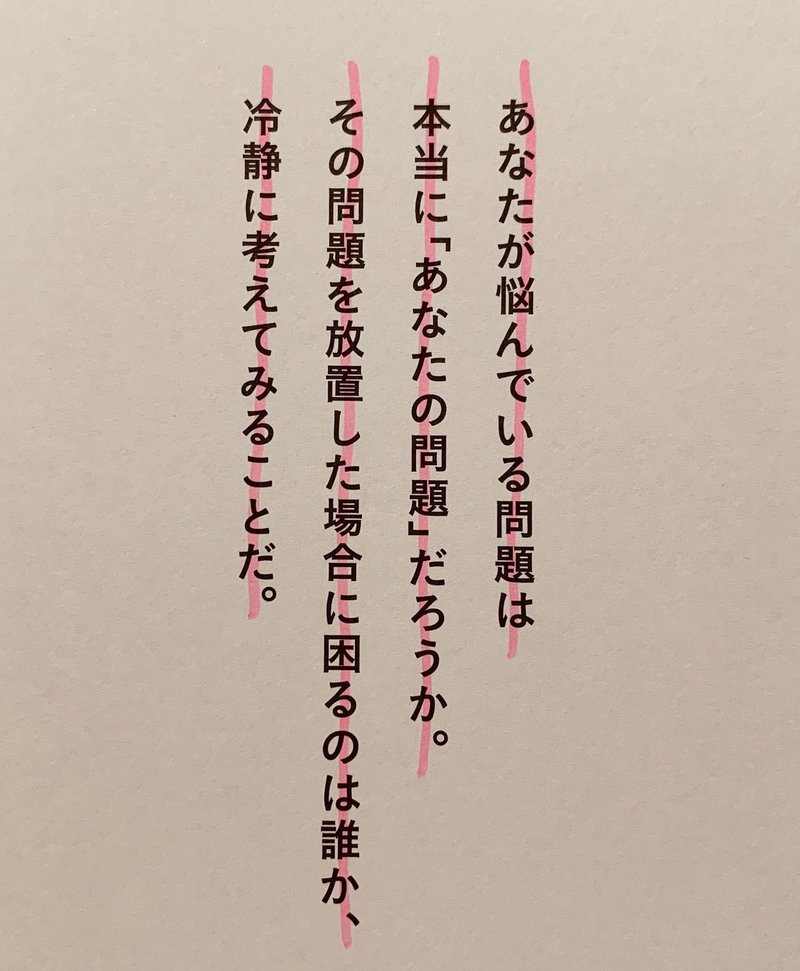 あなたが悩んでいる問題は
本当に「あなたの問題」だろうか。
その問題を放置した場合に困るのは誰か、
冷静に考えてみることだ。